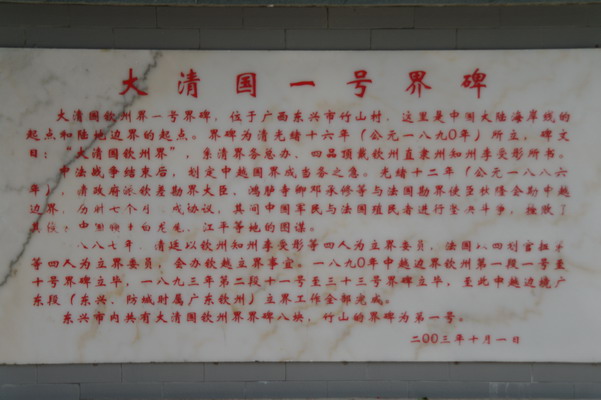 大清国一号界碑
大清国钦州界一号界碑，位于广西东兴市竹山村，这里是中国大陆海岸线的
起点和陆地边界的起点。界碑为清光绪十六年（公元一八九0年）所立，碑文
曰：“大清国钦州界”，系清界务总办、四品顶戴钦州直隶州知州李受彤所书。
中法战争结束后，划定中越国界成当务之急。光绪十二年（公元一八八六
年），清政府派钦差勘界大臣、鸿胪寺卿邓承修等与法国勘界使臣狄隆会勘中越
边界，历时七个月 成协议，其间中国军民与法国殖民者进行坚决斗争，挫败了
其 中国领土白龙尾、江平等地的图谋。
一八八七年，清廷以钦州知州李受彤等四人为立界委员，法国以四划官拉
等四人为立界委员，会办钦越立界事宜。一八九0年中越边界钦州第一段一号至
十号界碑立毕，一八九三年第二段十一号至三十三号界碑立毕，至此中越边境广
东段（东兴、防城时属广东钦州）立界工作全部完成。
东兴市内共有大清国钦州界界碑八块，竹山的界碑为第一号。
二00三年十月一日